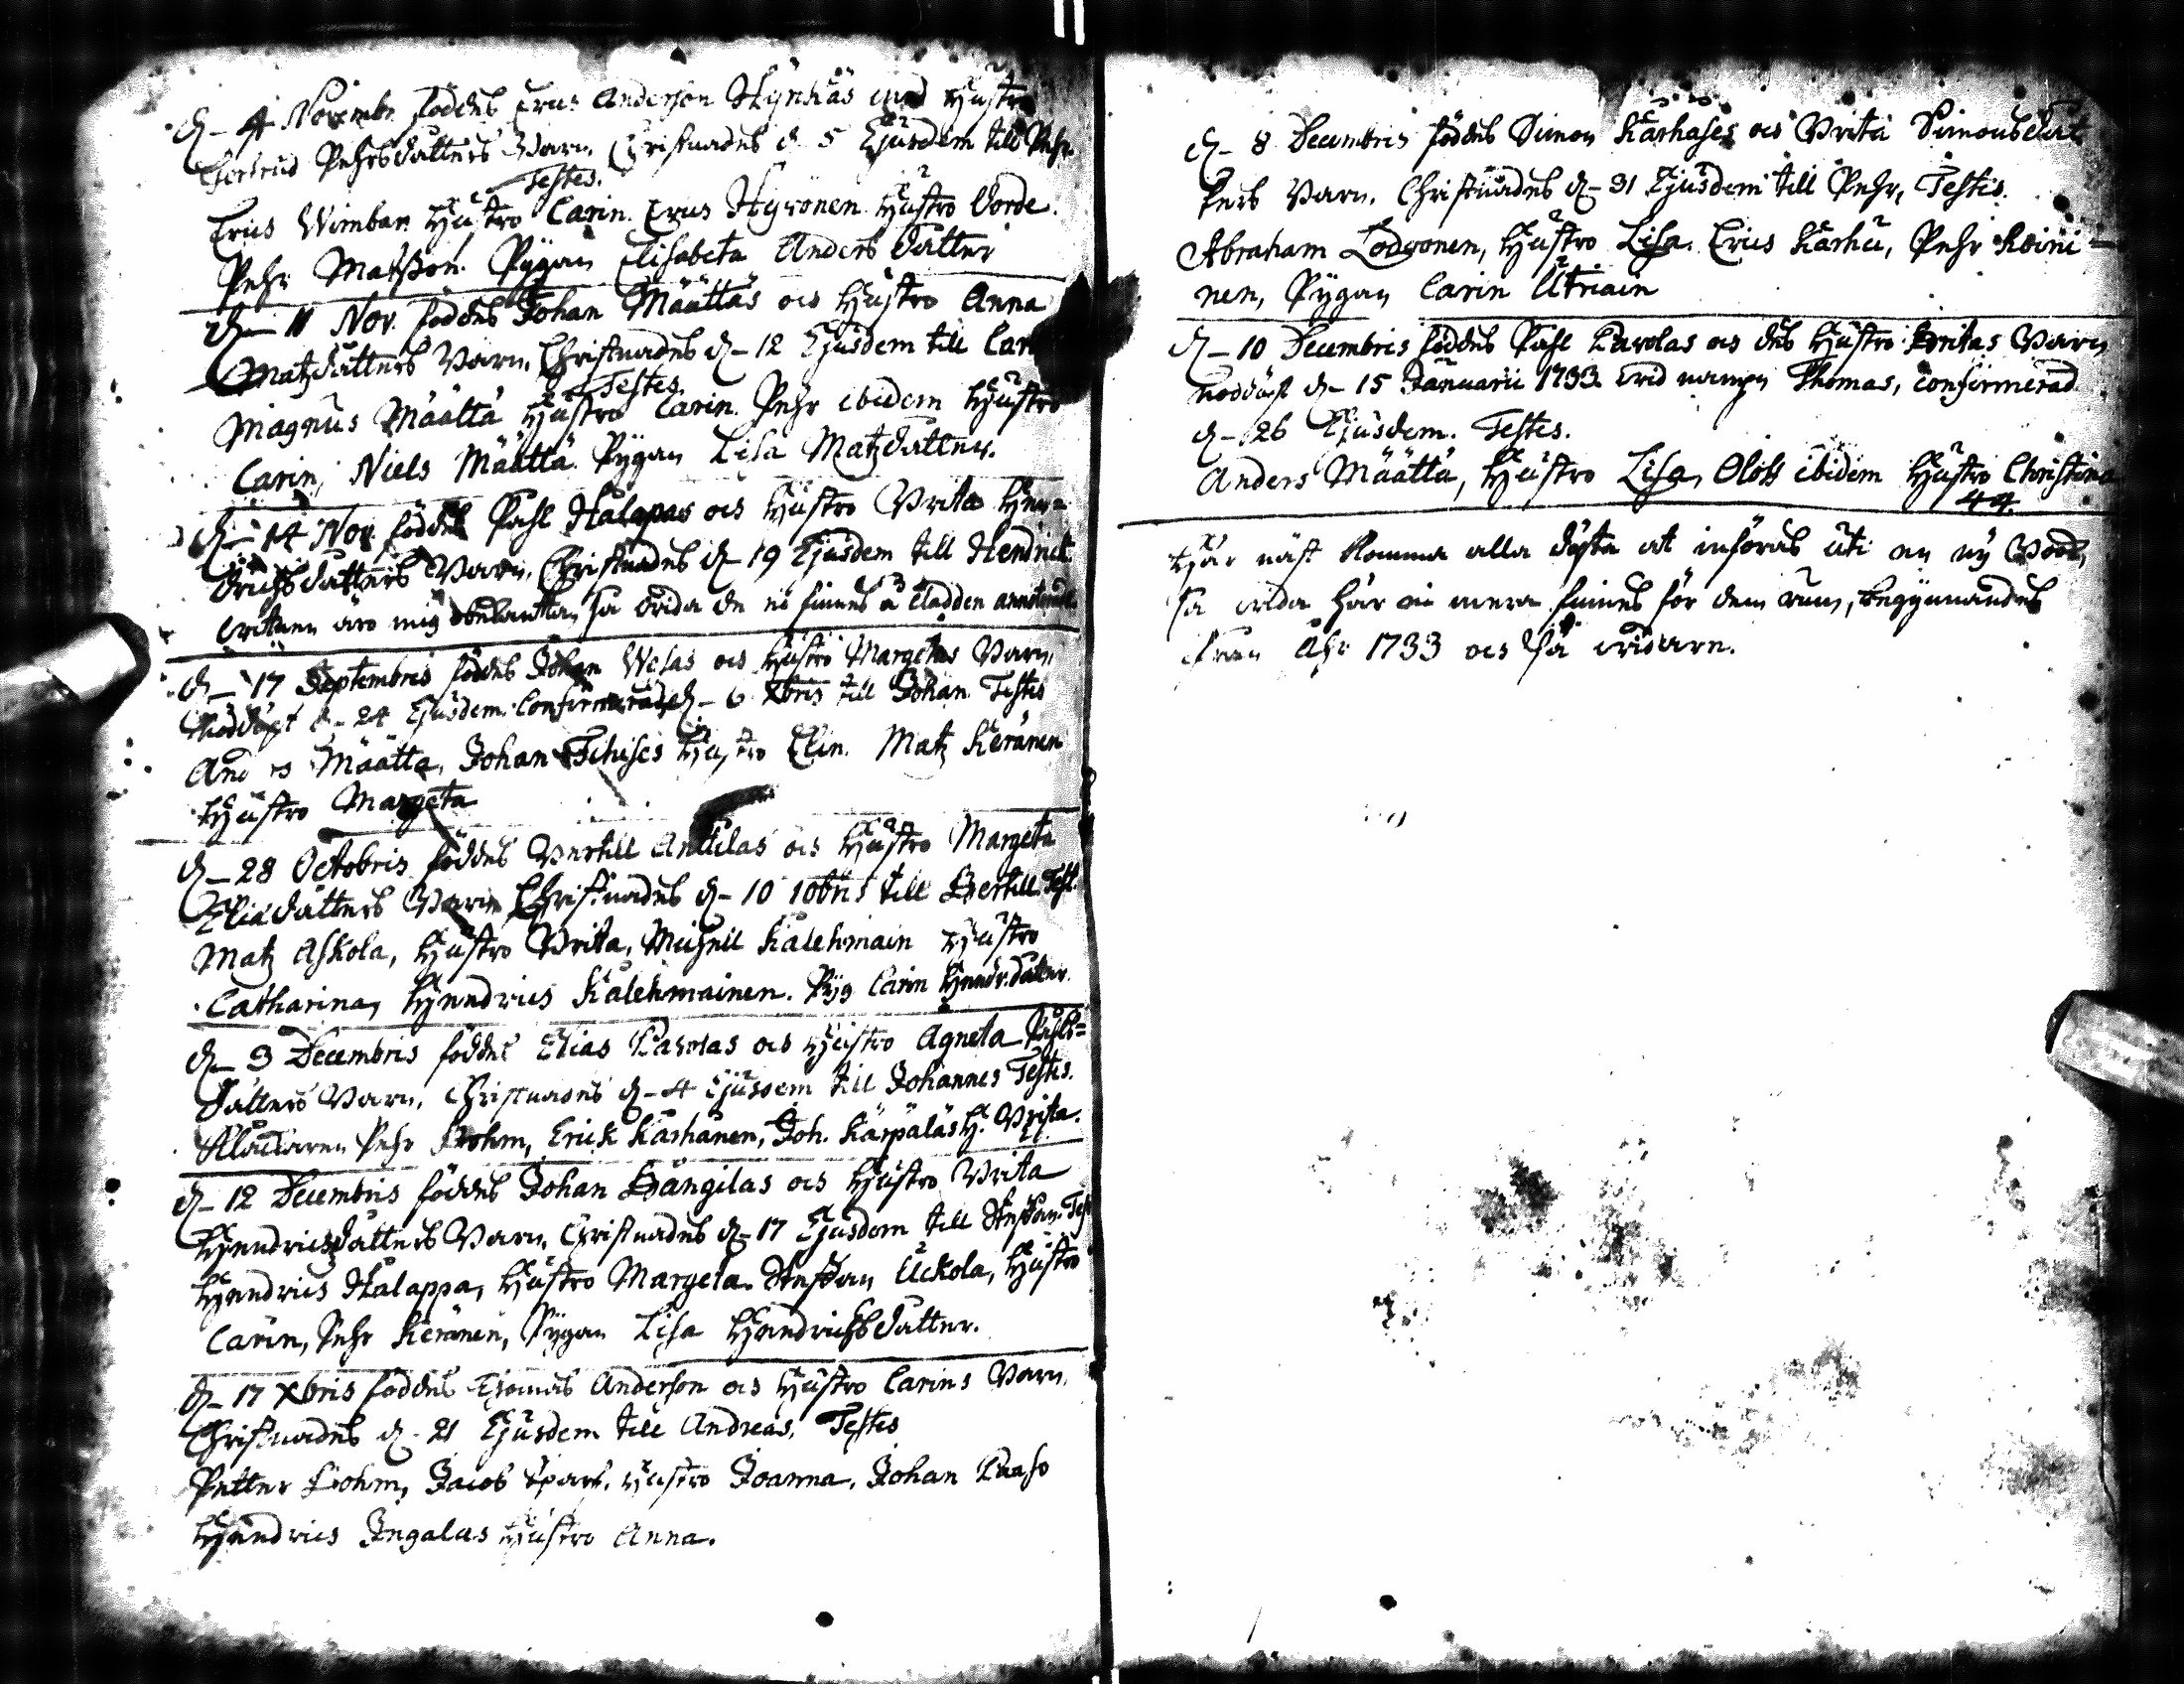 d. 4 Novembr. föddes Erics Anderson Hynkäs med hustru
Gertrud Pehrsdotters Barn, Christnades d 5 Ejusdem till Pehr.
Testes.
Erics Wimbar. Hustro Carin. Erics Hyvönen Hustro Vorde.
Pehr Matzson. Pÿgan Elisabeta Anders dotter
d. 11 Nov. föddes Johan Määttäs och Hustro Anna
Matzdotters Barn, Christnades d. 12 Ejusdem till Car
Testes.
Magnus Määttä Hustro Carin. Pehr ibidem Hustro
Carin, Niels Määttä. Pÿgan Lisa Matzdotter.
d. 14 Nov. föddes Påhl Halapas och Hustro Brita Hen=
drichsdotters Barn, Christnades d. 19 Ejusdem till Hendrick
äro mig obekanta, så vida de ei finnes å Cladden annoterade
d. 17 Septembris föddes Johan Welas och Hustro Margetas Barn,
Nöddöpt d. 24 Ejusdem. Confirmerad d. 6 Xbris till Johan Testes
And rs Määtta, Johan Tchises Hustro Elin. Matz Keränen
Hustro Margeta
d. 28 Octobris föddes Bertill Anttilas och Hustro Margeta
Eliædotters Barn Christnades d. 10 10bris till Bertill Test.
Matz Askola, Hustro Brita, Michell Kalehmain Hustro
Catharina, Hendrics Kalehmainen. Pÿg Carin Hendr.dotter.
d. 3 Decembris föddes Elias Pavolas och Hustro Agneta Påhls=
dotters Barn, Christnades d. 4 Ejusdem till Johannes Testes.
Klåckaren Pehr Brohm, Erick Karhanen, Joh. Kärpäläs H. Brita.
d. 12 Decembris föddes Johan Hängiläs och Hustro Brita
Hendricsdotters Barn, Christnades d. 17 Ejusdem till Steffan. Tes
Hendrics Halappa, Hustro Margeta. Steffan Uckola, Hustro
Carin, Pehr Keränen, Pÿgan Lisa Hendrichsdotter.
d. 17 Xbris föddes Thomas Anderson och Hustro Carins Barn,
Christnades d. 21 Ejusdem till Andreas, Testes
Petter Brohm, Jacob Spare, Hustro Joanna, Johan Laaso
Hendrics Ingalas Hustro Anna.
d. 8 Decembris föddes Simon Karhases och Brita Simonsdot
ters Barn. Christnades d. 31 Ejusdem till Pehr, Testis.
Abraham Lodvonen, Hustro Lisa. Erics Karhu, Pehr Koini=
nen, Pÿgan Carin Utriain
d. 10 Decembris föddes Påhl Pavolas och des Hustro Britas Barn
noddöpt d. 15 Januarii 1733 vid nampn Thomas, confirmerad
d. 26 Ejusdem. Testes.
Anders Määttä, Hustro Lisa, Oloff ibidem Hustro Christina
44
Här näst komma alla döpta at införas uti en nÿ Book,
så vida här ei mera finnes för dem rum, begynnandes
från Åhr 1733 och så vidare.